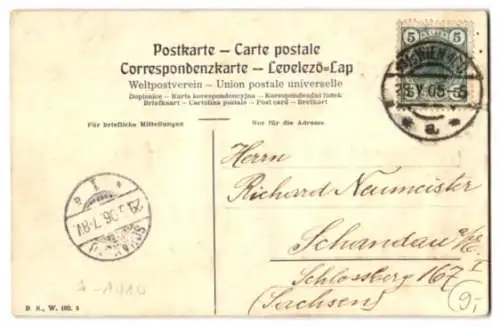 Postkarte – Carte postale
Correspondenzkarte – Levelezö-Lap
Weltpostverein – Union postale universelle
Dopisnice – Karta korespondencyjna – Korespondenční lístek
Briefkaart – Cartolina postale – Post card – Brefkort
Für briefliche Mitteilungen
Nur für die Adresse
5 5
Herrn
Richard Neumeister
Schandau a/E.
Schlossberg 167 I
(Sachsen)
29.5.06.7-8V.
SCHANDAU
B. K., W. 192. 3
9,-